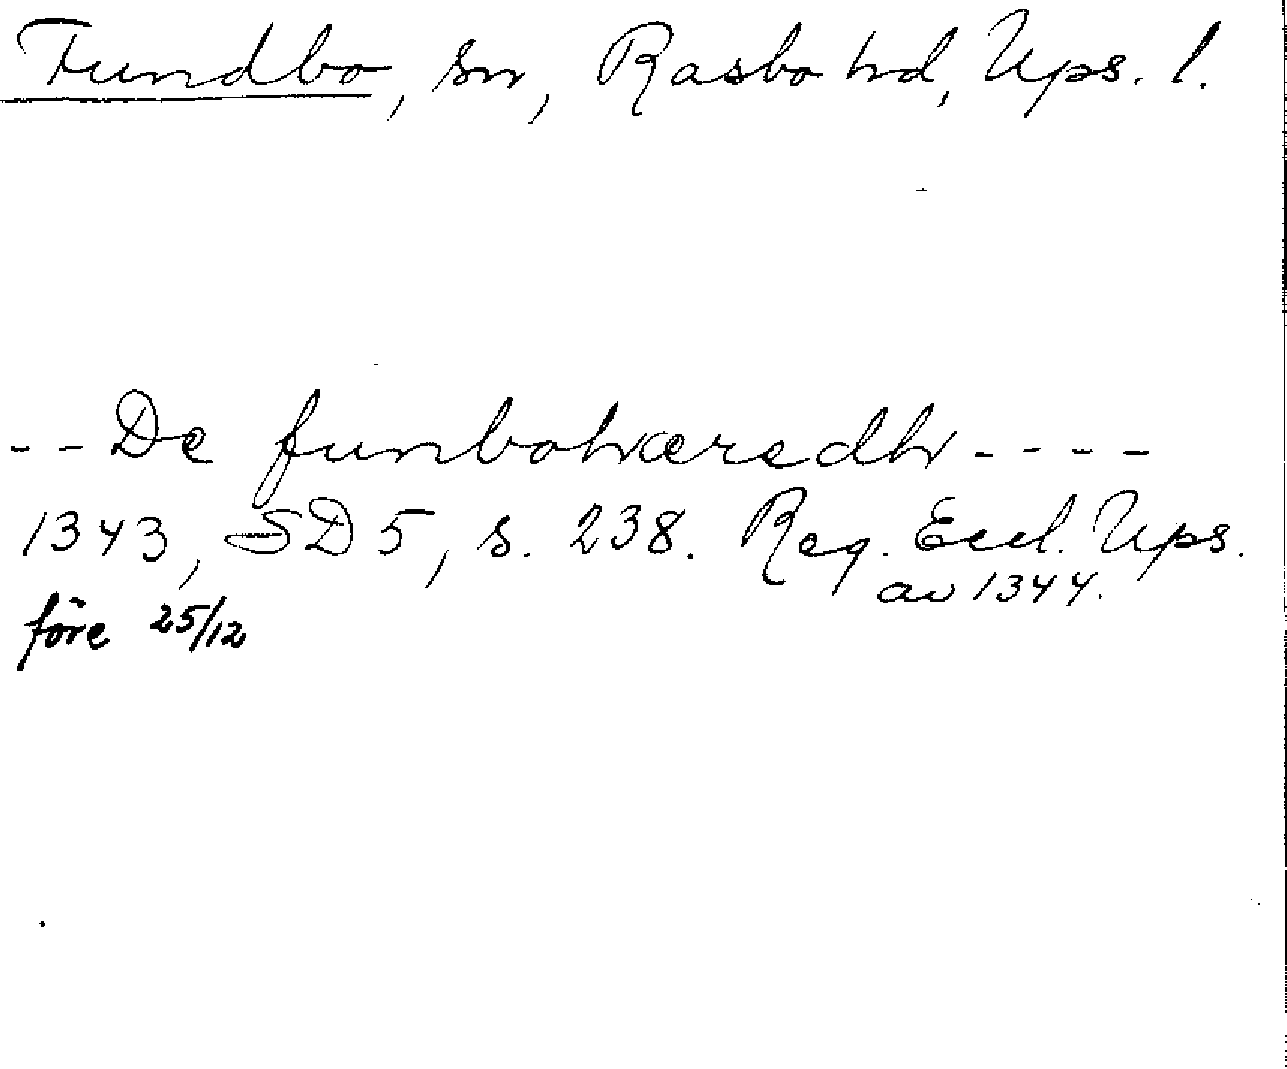 Fundbo, sn, Rasbo hd, Ups. l.
-- De funbohæredh ----
1343, SD 5, s. 238. Reg. Eccl. Ups.
av 1344.
före 25/12